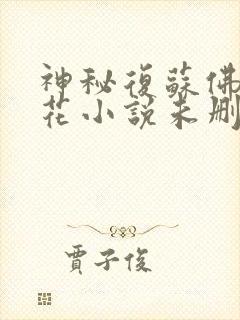 神秘復蘇佛
花小說未刪
賈子俊